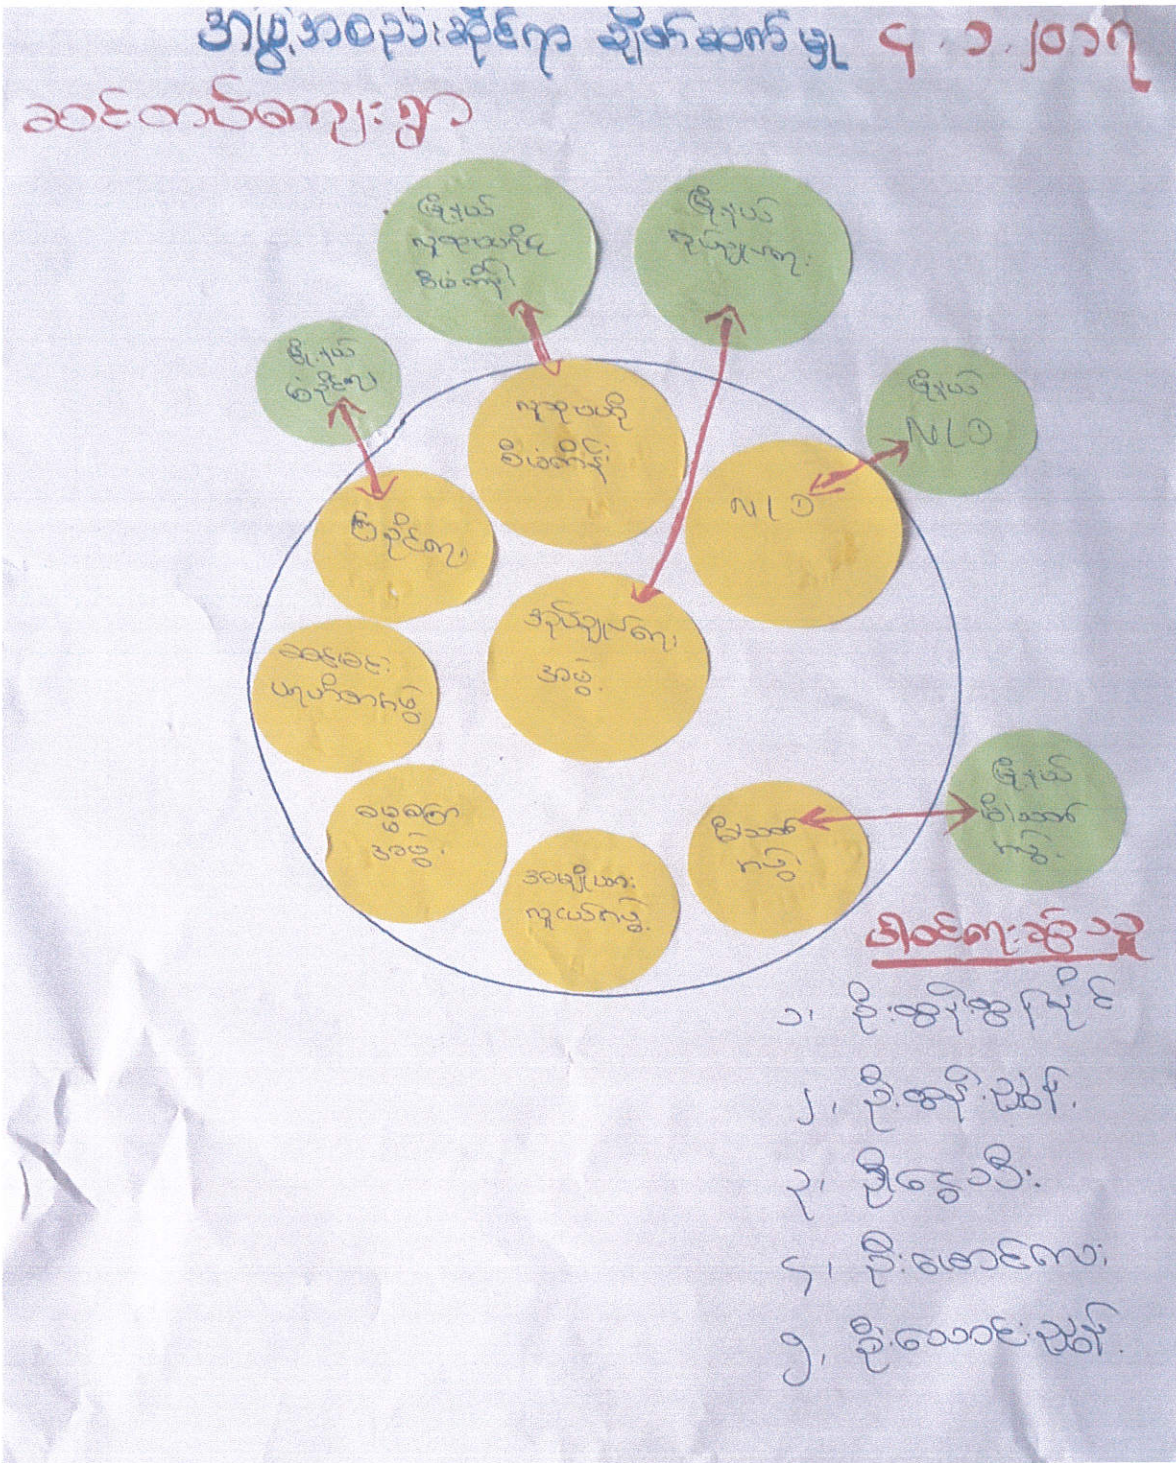 အဖွဲ့အစည်းဆိုင်ရာ ချိတ်ဆက်မှု ၄.၁.၂၀၁၇
ဆင်တပ်ကျေးရွာ
မြို့နယ်
လူထုဗဟိုပြု
စီမံကိန်း
မြို့နယ်
အုပ်ချုပ်ရေး
မြို့နယ်
ကြံ့ခိုင်ရေး
မြို့နယ်
NLD
လူထုဗဟိုပြု
စီမံကိန်း
NLD
ကြံ့ခိုင်ရေး
အုပ်ချုပ်ရေး
အဖွဲ့
ပရဟိတအဖွဲ့
ဓမ္မစကြာ
အဖွဲ့
အမျိုးသား
လူငယ်အဖွဲ့
မီးသတ်
အဖွဲ့
မြို့နယ်
မီးသတ်
အဖွဲ့
ပါဝင်ဆွေးနွေးသူ
၁၊ ဦးထွန်းထွန်းနိုင်
၂၊ ဦးထွန်းညွန့်
၃၊ ဦးငွေသီး
၄၊ ဦးမောင်လေး
၅၊ ဦးသောင်းညွန့်